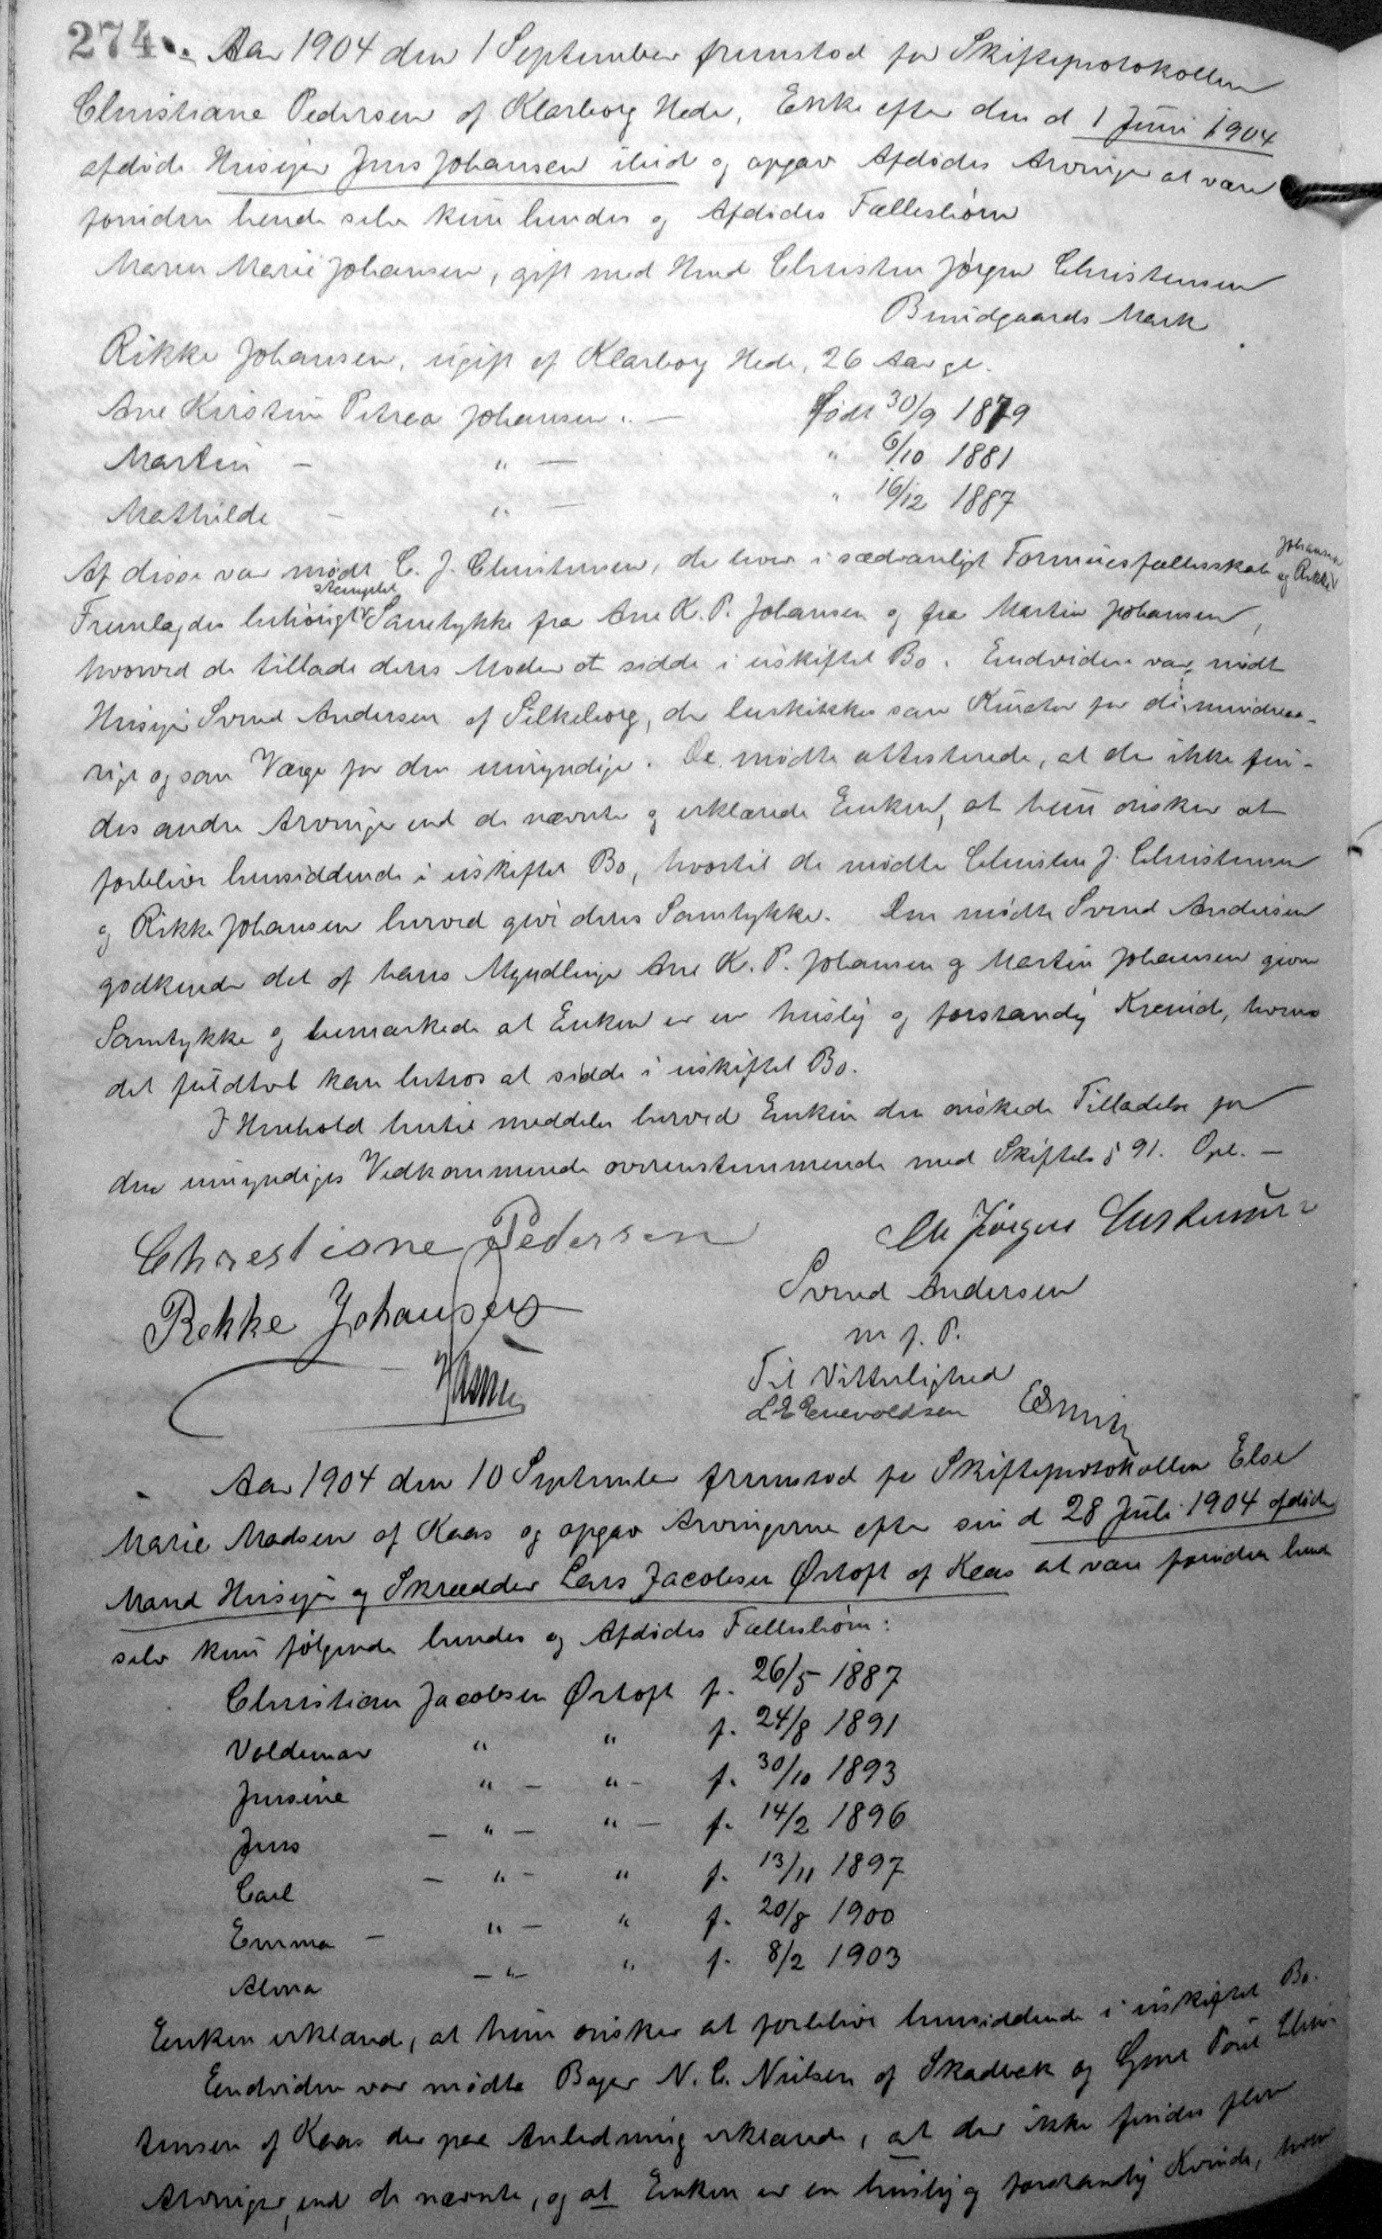 274. Aar 1904 den 1 September fremstod for Skifteprotokollen
Christiane Pedersen af Klarborg Hede, Enke efter den d 1 Juni 1904
afdøde Husejer Jens Johansen ibid og opgav Afdødes Arvinger at være
foruden hende selv kun hendes og Afdødes Fællesbørn
Maren Marie Johansen, gift med Hmd Christen Jørgen Christensen
Bundgaards Mark
Rikke Johansen, ugift af Klarborg Hede, 26 Aar gl.
Ane Kirstine Petrea Johansen. — Født 30/9 1879
Martin — " — " 6/10 1881
Mathilde — " — " 16/12 1887
Af disse var mødt C. J. Christensen, der lever i sædvanligt Formuesfællesskab og Rikke Johansen
Fremlagdes behørigt stemplet Samtykke fra Ane K. P. Johansen og fra Martin Johansen,
hvorved de tillade deres Moder at sidde i uskiftet Bo. Endvidere var mødt
Husejer Svend Andersen af Silkeborg, der beskikkes som Kurator for de mindreaa-
rige og som Værge for den umyndige. De mødte attesterede, at der ikke fin-
des andre Arvinger end de nævnte og erklærede Enken, at hun ønsker at
forblive hensiddende i uskiftet Bo, hvortil de mødte Christen J. Christensen
og Rikke Johansen herved give deres Samtykke. Den mødte Svend Andersen
godkendte det af hans Myndlinge Ane K. P. Johansen og Martin Johansen givne
Samtykke og bemærkede at Enken er en huslig og forstandig Kvinde, hvem
det fuldtvel kan betros at sidde i uskiftet Bo.
I Henhold hertil meddeles herved Enken den ønskede Tilladelse for
den umyndiges Vedkommende overensstemmende med Skiftel § 91. Opl. —
Chrestiane Pedersen Chr Jørgen Christensen
Rikke Johansen Svend Andersen
m. f. P.
Til Vitterlighed
L E Enevoldsen
Aar 1904 den 10 September fremstod for Skifteprotokollen Else
Marie Madsen af Kaas og opgav Arvingerne efter sin d 28 Juli 1904 afdøde
Mand Husejer og Skrædder Lars Jacobsen Østoft af Kaas at være foruden hende
selv kun følgende hendes og Afdødes Fællesbørn:
Christian Jacobsen Østoft f. 26/5 1887
Valdemar " " f. 24/8 1891
Jensine " — " — f. 30/10 1893
Jens — " — " — f. 14/2 1896
Carl — " — " f. 13/11 1897
Emma — " — " f. 20/8 1900
Alma — " — " f. 8/2 1903
Enken erklærede, at hun ønsker at forblive hensiddende i uskiftet Bo.
Endvidere var mødte Bager N. C. Nielsen af Skadbæk og Gmd Poul Chris-
tensen af Kaas der paa Anledning erklærede, at der ikke findes flere
Arvinger, end de nævnte, og at Enken er en huslig og forstandig Kvinde, hvem